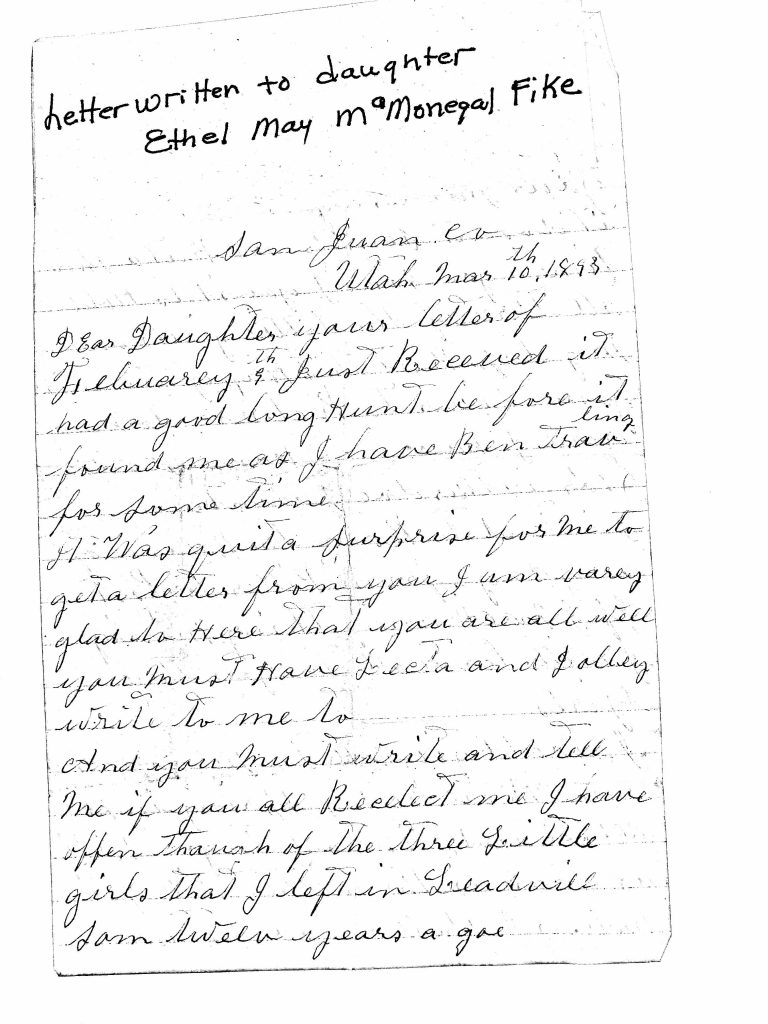 Letter written to daughter
Ethel May McMonegal Fike
San Juan Co
Utah Mar 10th, 1893
DEar Daughter your letter of
Febuarey 9th Just Receved it
had a good long Hunt be fore it
found me as I have Ben Travling
for some time
It Was quit a surprise for Me to
get a letter from you I am varey
glad to Here that you are all well
you Must Have Lecta and Jolley
write to me to
And you Must write and tell
Me if you all Recelect me I have
offen though of the three Little
girls that I left in Leadvill
som twelv years a goe